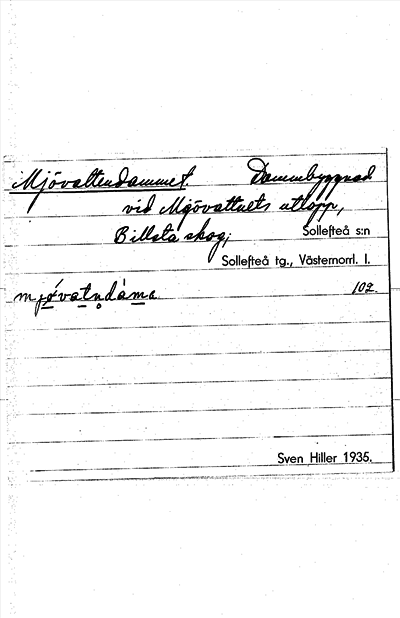 Mjövattendammet. Dammbyggnad
vid Mjövattnets utlopp,
Billsta skog; Sollefteå s:n
Sollefteå tg., Västernorrl. l.
mjǿvatn̥dàma 102.
Sven Hiller 1935.